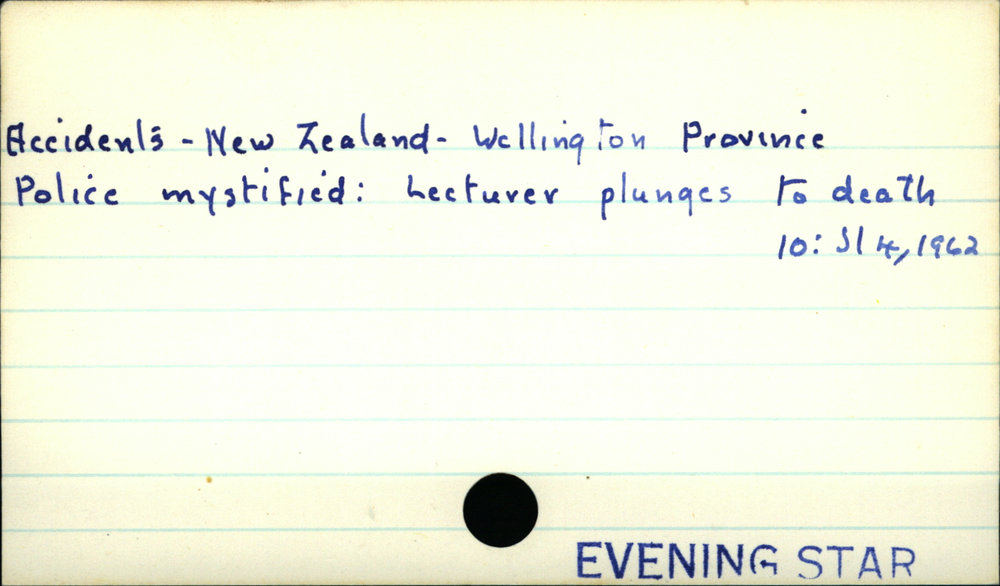 Accidents - New Zealand - Wellington Province
Police mystified: Lecturer plunges to death
10: Jl 4, 1962
EVENING STAR